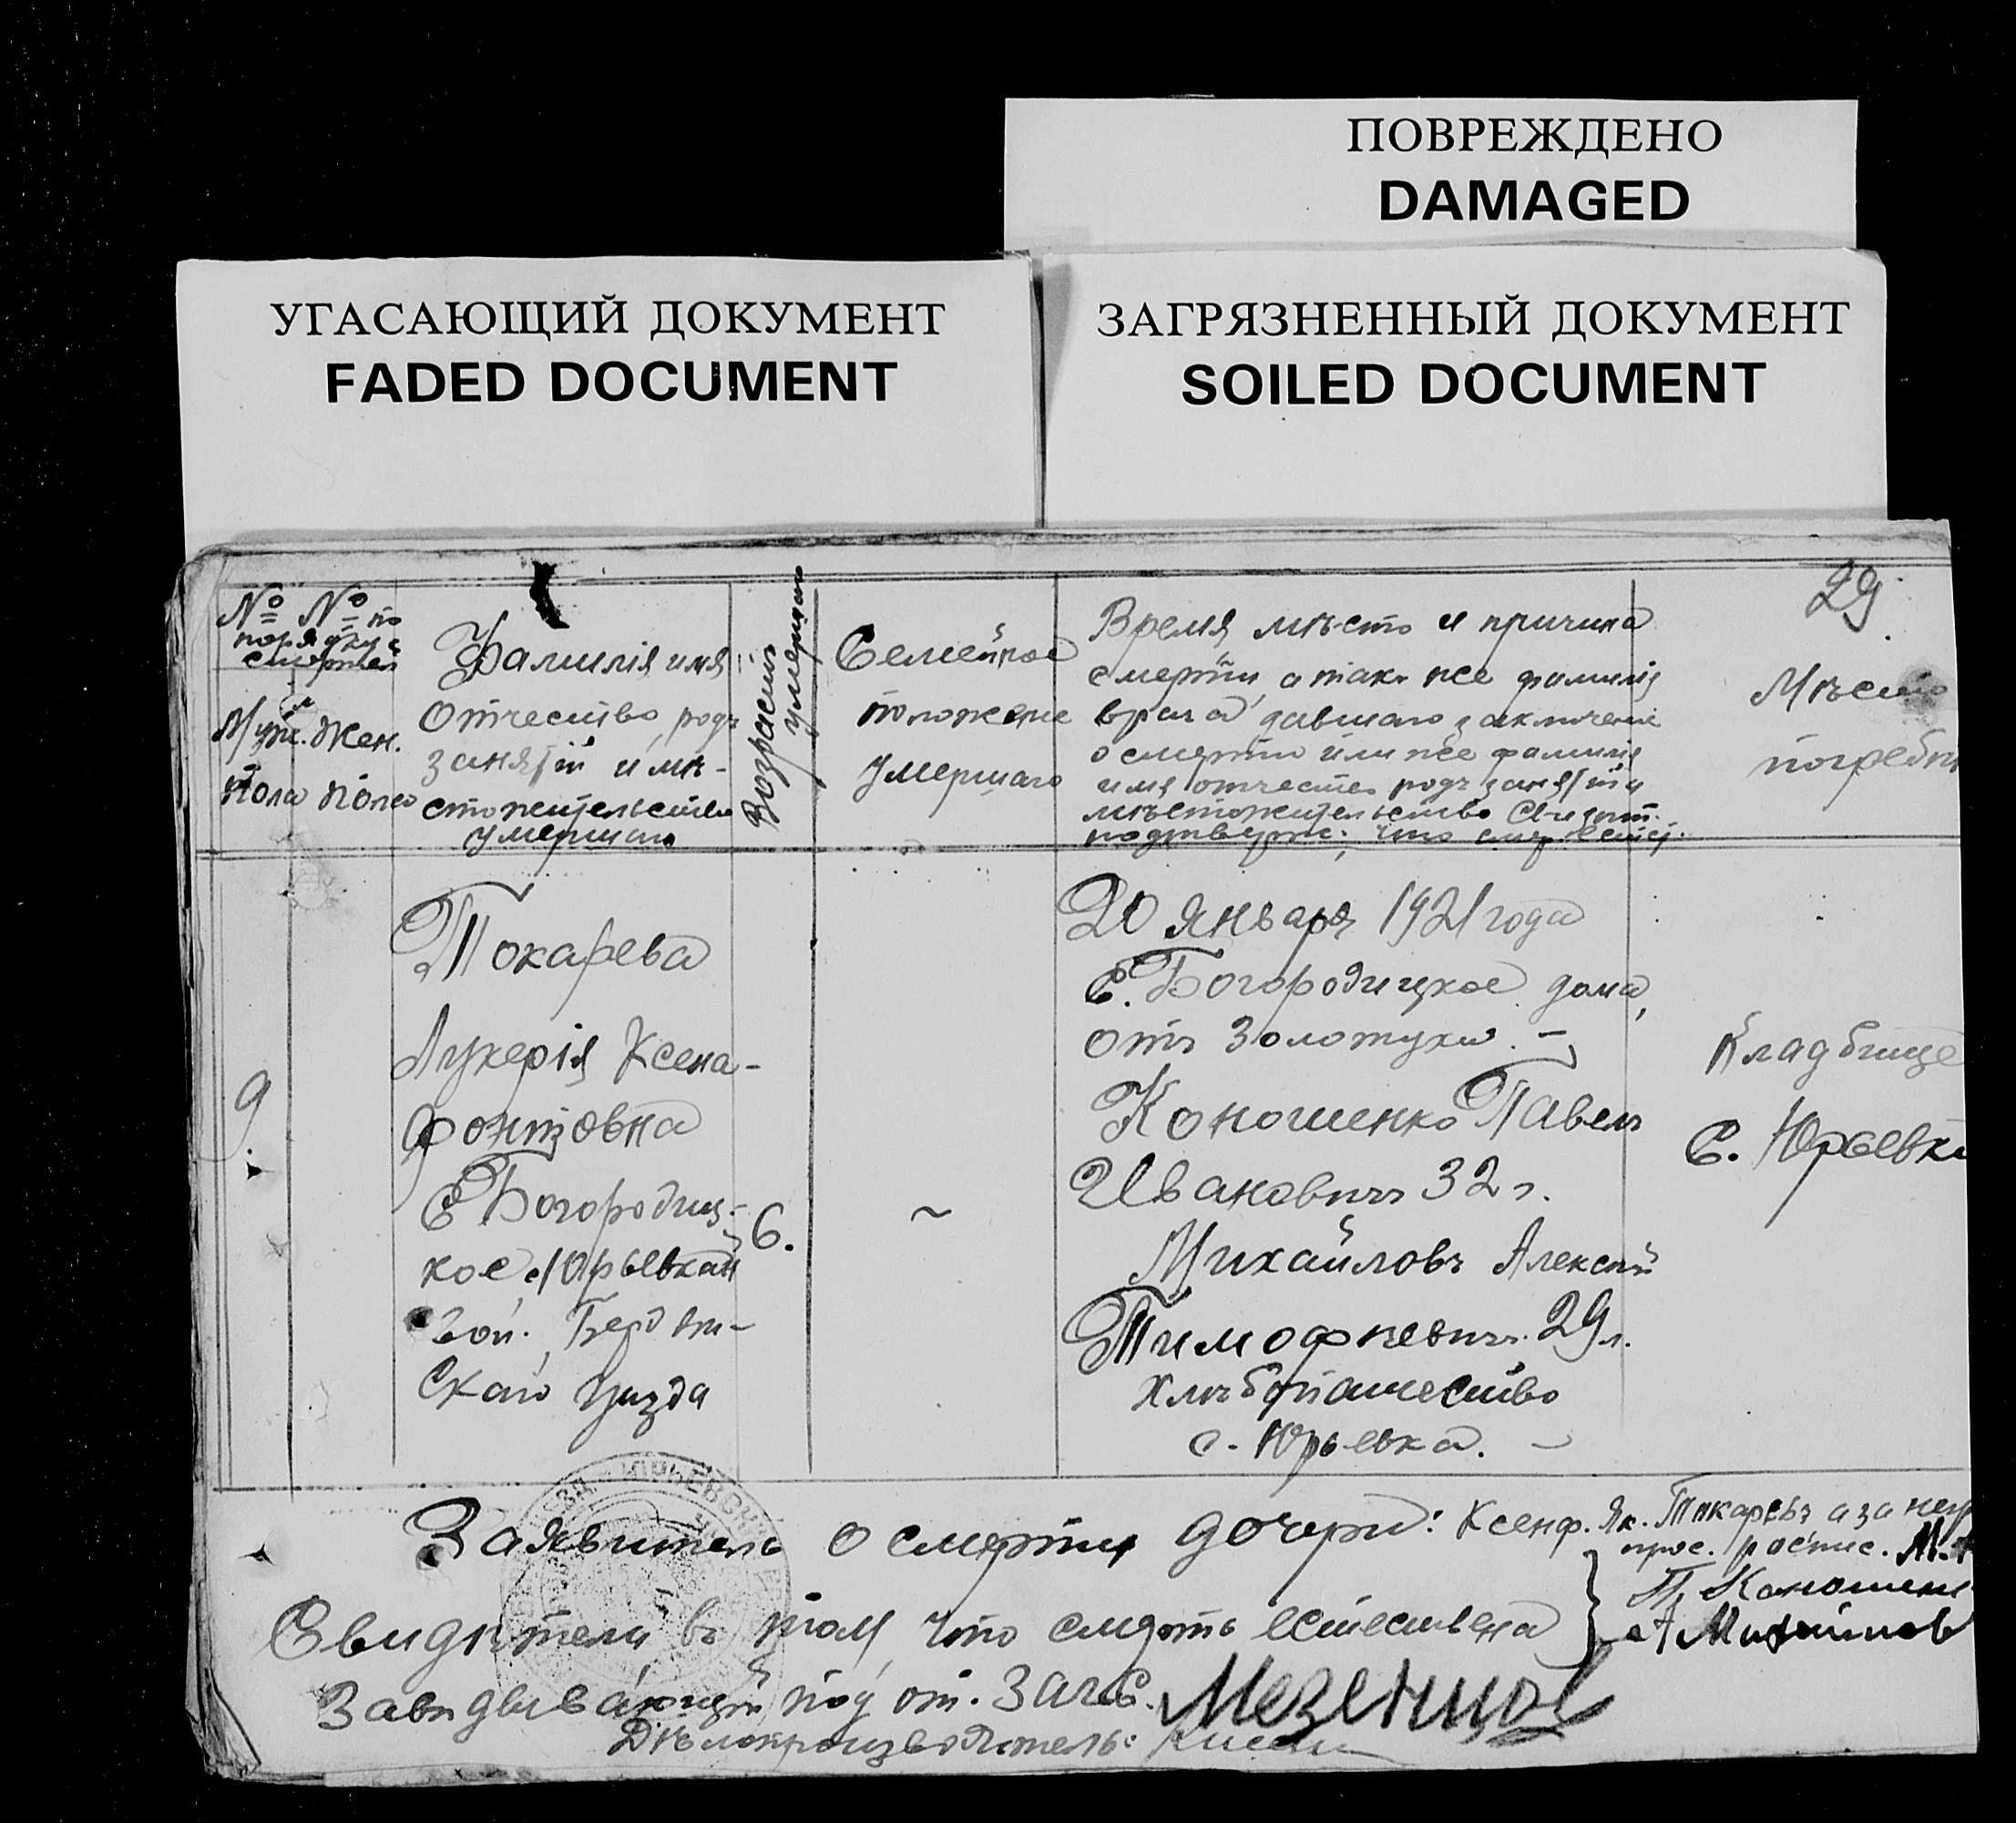 ПОВРЕЖДЕНО
DAMAGED
УГАСАЮЩИЙ ДОКУМЕНТ
FADED DOCUMENT
ЗАГРЯЗНЕННЫЙ ДОКУМЕНТ
SOILED DOCUMENT
29.
№ № по
порядку
смертей
Муж. Жен.
пола пола
Фамилія имя
Отчество родъ
занятій и мѣ-
стожительство
умершаго
Возрастъ
умершаго
Семейное
положение
умершаго
Время мѣсто и причина
смерти, а так же фамилія
врача давшаго заключение
о смерти или же фамилія
имя отчество родъ занятій и
мѣстожительство Свидѣт.
подтверж. что
Мѣсто
погребен
9.
Токарева
Лукерія Ксена-
фонтовна
С. Богородиц-
кое, Юрьевская
вол. Бердян-
скаго уѣзда
6.
~
20 Января 1921 года
С. Богородицкое дома,
отъ Золотухи. –
Коношенко Павелъ
Ивановичъ 32 г.
Михайловъ Алексѣй
Тимофѣевичъ 29 л.
Хлѣбопашество
с. Юрьевка. –
Кладбище
С. Юрьевки
Заявитель о смерти дочери: Ксенф. Як. Токаревъ а за нег
прос. роспис. М.
Свидѣтели въ том, что смерть естествена } П. Коношенк
А Михайлов
Завѣдывающій под от. Загс. Мезенцов
Дѣлопроизводитель: